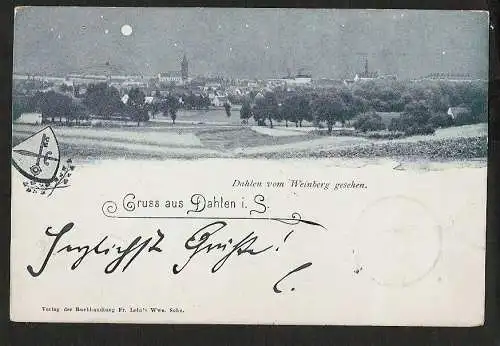 Dahlen vom Weinberg gesehen.
Gruss aus Dahlen i. S.
Herzlichste Grüße!
C.
Verlag der Buchhandlung Fr. Lehr's Wwe. Sohn.